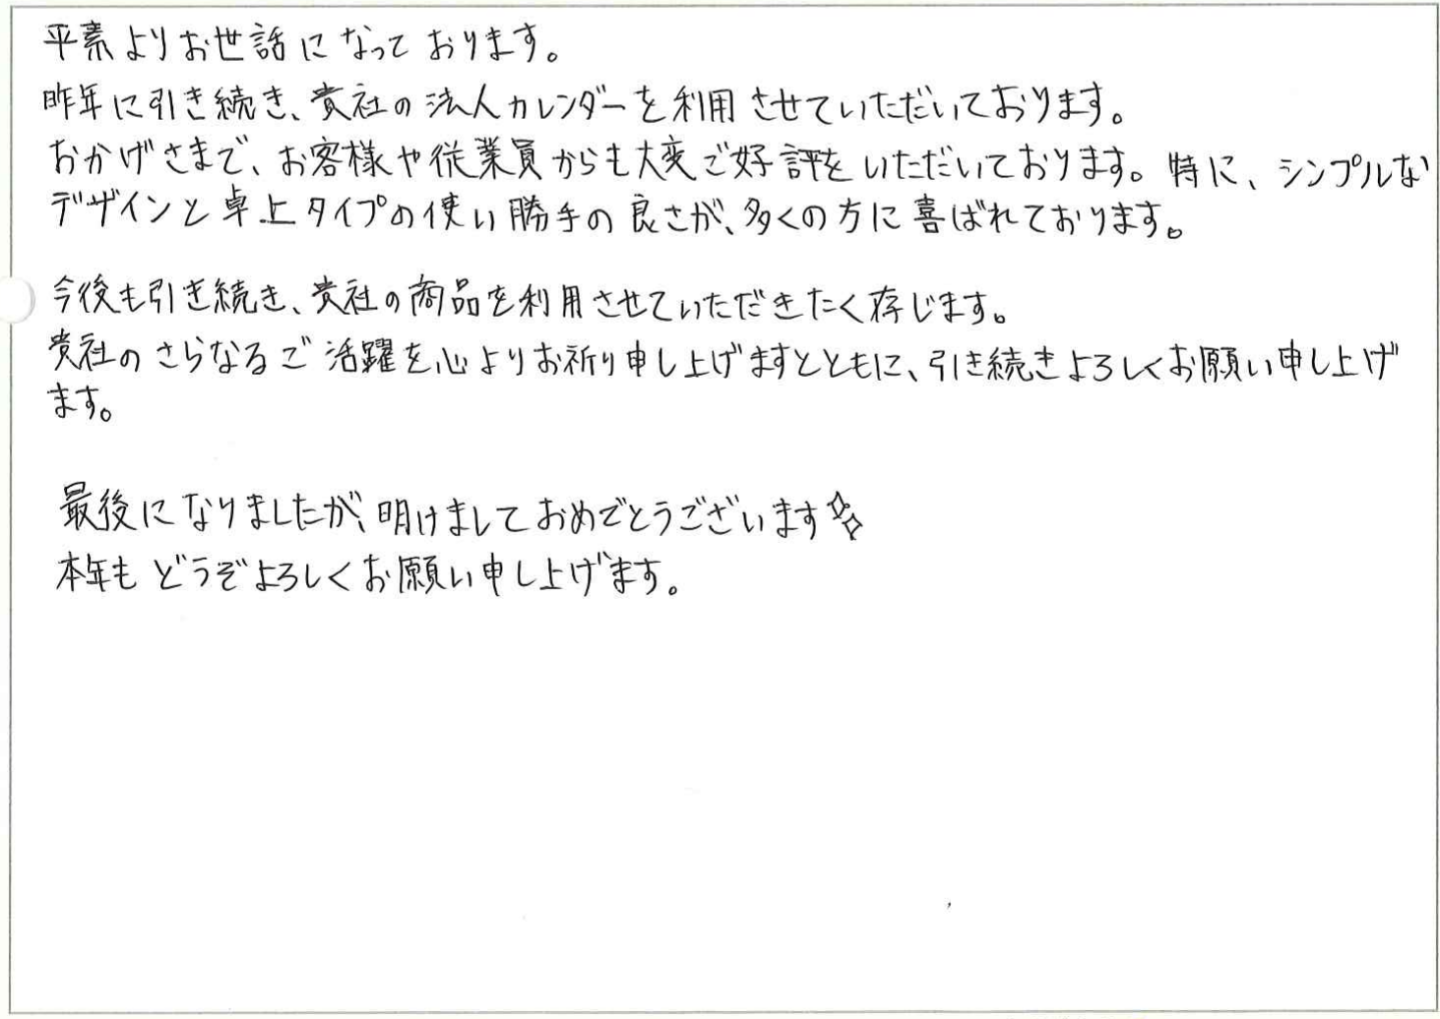 平素よりお世話になっております。
昨年に引き続き、貴社の法人カレンダーを利用させていただいております。
おかげさまで、お客様や従業員からも大変ご好評をいただいております。特に、シンプルな
デザインと卓上タイプの使い勝手の良さが、多くの方に喜ばれております。
今後も引き続き、貴社の商品を利用させていただきたく存じます。
貴社のさらなるご活躍を心よりお祈り申し上げますとともに、引き続きよろしくお願い申し上げ
ます。
最後になりましたが、明けましておめでとうございます✨
本年もどうぞよろしくお願い申し上げます。